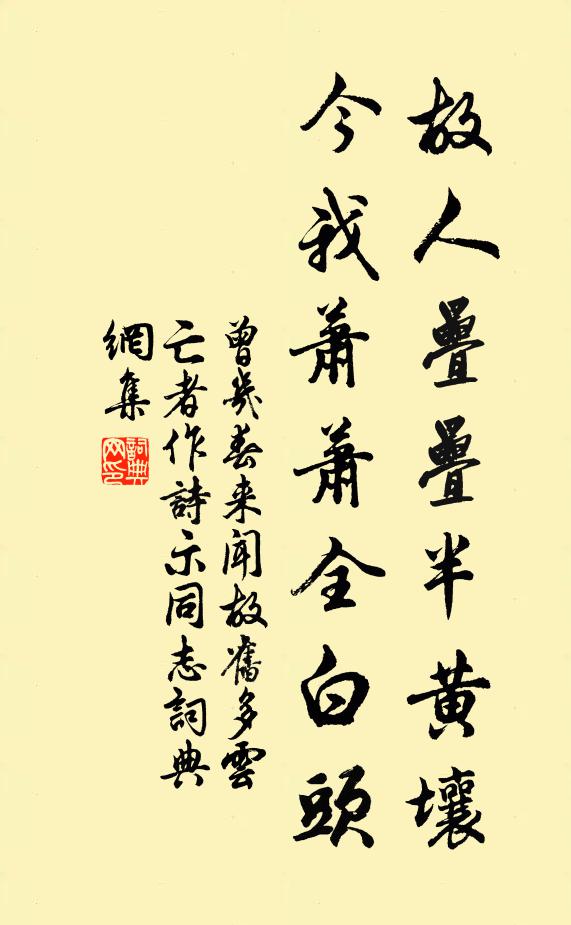 故人疊疊半黃壤
今我蕭蕭全白頭
曾幾春来闻故舊多雲
亡者作詩示同志詞典
網集
詞典網印